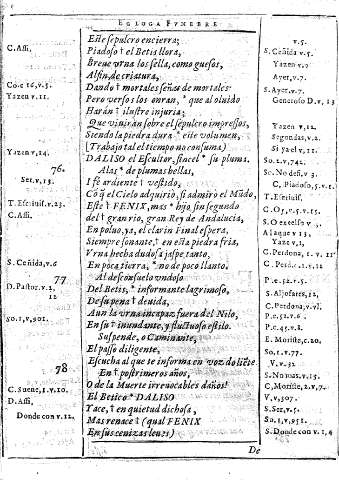 EGLOGA FVNEBRE
Este sepulcro encierra;
Piadoso † el Betis llora,
Breue vrna los sella, como guesos,
Al fin, de criatura,
Dando † mortales señas de mortales:
Pero versos los onran, * que al oluido
Harán † ilustre injuria;
Que viuirán sobre el sepulcro impressos,
Siendo la piedra dura * este volumen,
(Trabajo tal el tiempo no consuma)
DALISO el Escultor, sincel * su pluma.
Alas * de plumas bellas,
I fé ardiente † vestido,
Este † FENIX, mas * hijo sin segundo
del † gran rio, gran Rey de Andalucia,
En poluo, ya, el clarin Final espera,
Siempre sonante, † en esta piedra fria,
Vrna hecha dudosa jaspe tanto,
En poca tierra, * no de poco llanto.
Al desconsuelo vndoso
Del Betis, * informante lagrimoso,
De su pena † deuida,
Aun la vrna incapaz fuera del Nilo,
En su † inundante, y fluctuoso estilo.
Suspende, o Caminante,
El passo diligente,
Escucha al que te informa en voz doliẽte
En † postrimeros años,
O de la Muerte irreuocables daños!
El Betico * DALISO
Yace, † en quietud dichosa,
Mas renace † (qual FENIX
En sus cenizas leues)
De
C. Assi,
Yazen v. 11.
Yazen v, 14.
76.
Ser, v, 15.
T. Escuiuif. v. 23.
C. Assi,
S. Ceñida, v. 6
77
D. Pastor, v. 2,
12
So. 1, v, 501.
78
C. Suene, 1. v. 10.
D. Assi,
Donde con v. 12.
v. 5.
S. Ceñida v. 5.
Yazen v.
Ayer, v. 7.
S. Ayer, v. 7.
Generoso D. v, 13
Yazen v, 12.
Segundas, v. 2.
Si ya el v, 11.
So. 2, v. 742.
So. No des, v. 3
C, Piadoso, 5. v.
C. O5, v. 5. v. 15.
S. O excelso v.
A Iaque v 13,
Yaze v, 1,
C. Perdona, 1. v. 11
P. e. 52. v. 5.
S. Aljofares, 12,
C. Perdona, v.
P. e. 52. v. 6.
P. e. 45. v. 8.
E. Moriste, c. 20.
So, 1. v. 77.
V, v. 32
S. No mas, v. 15.
C, Moriste, 2. v, 7.
V, v, 307.
S. Ser, v, 5.
So, 1, v, 951.
S. Donde con v. 1,